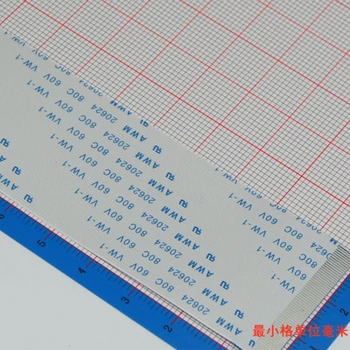 AWM 20624 80C 60V VW-1
AWM 20624 80C 60V VW-1
AWM 20624 80C 60V VW-1
AWM 20624 80C 60V VW-1
AWM 20624 80C 60V VW-1
AWM 20624 80C 60V VW-1
AWM 20624 80C 60V VW-1
5
4
3
2
1
最小格单位毫米